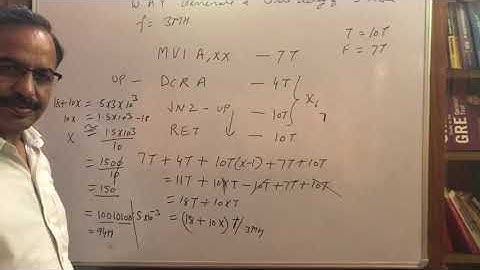 f = 3MH
T = 10T
F = 7T
MVI A,XX — 7T
UP — DCR A — 4T
JNZ - UP — 10T
RET — 10T
X
7
18+10x = .5x3x10³
10x = 1.5x10³-18
x ≅ 1.5x10³/10
= 1500/10
= 150
= 10010100
= 94H
.5x10⁻³
7T + 4T + 10T(x-1) + 7T + 10T
= 11T + 10xT - 10T + 7T + 10T
= 18T + 10xT
= (18 + 10x) T/3MH
GRE